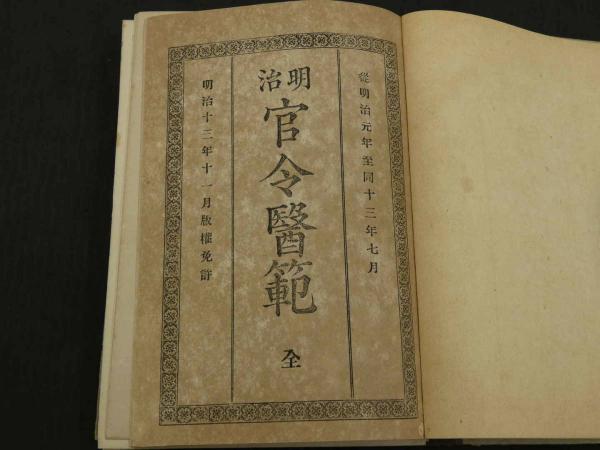 從明治元年至同十三年七月
明治
官令醫範
全
明治十三年十一月版權免許